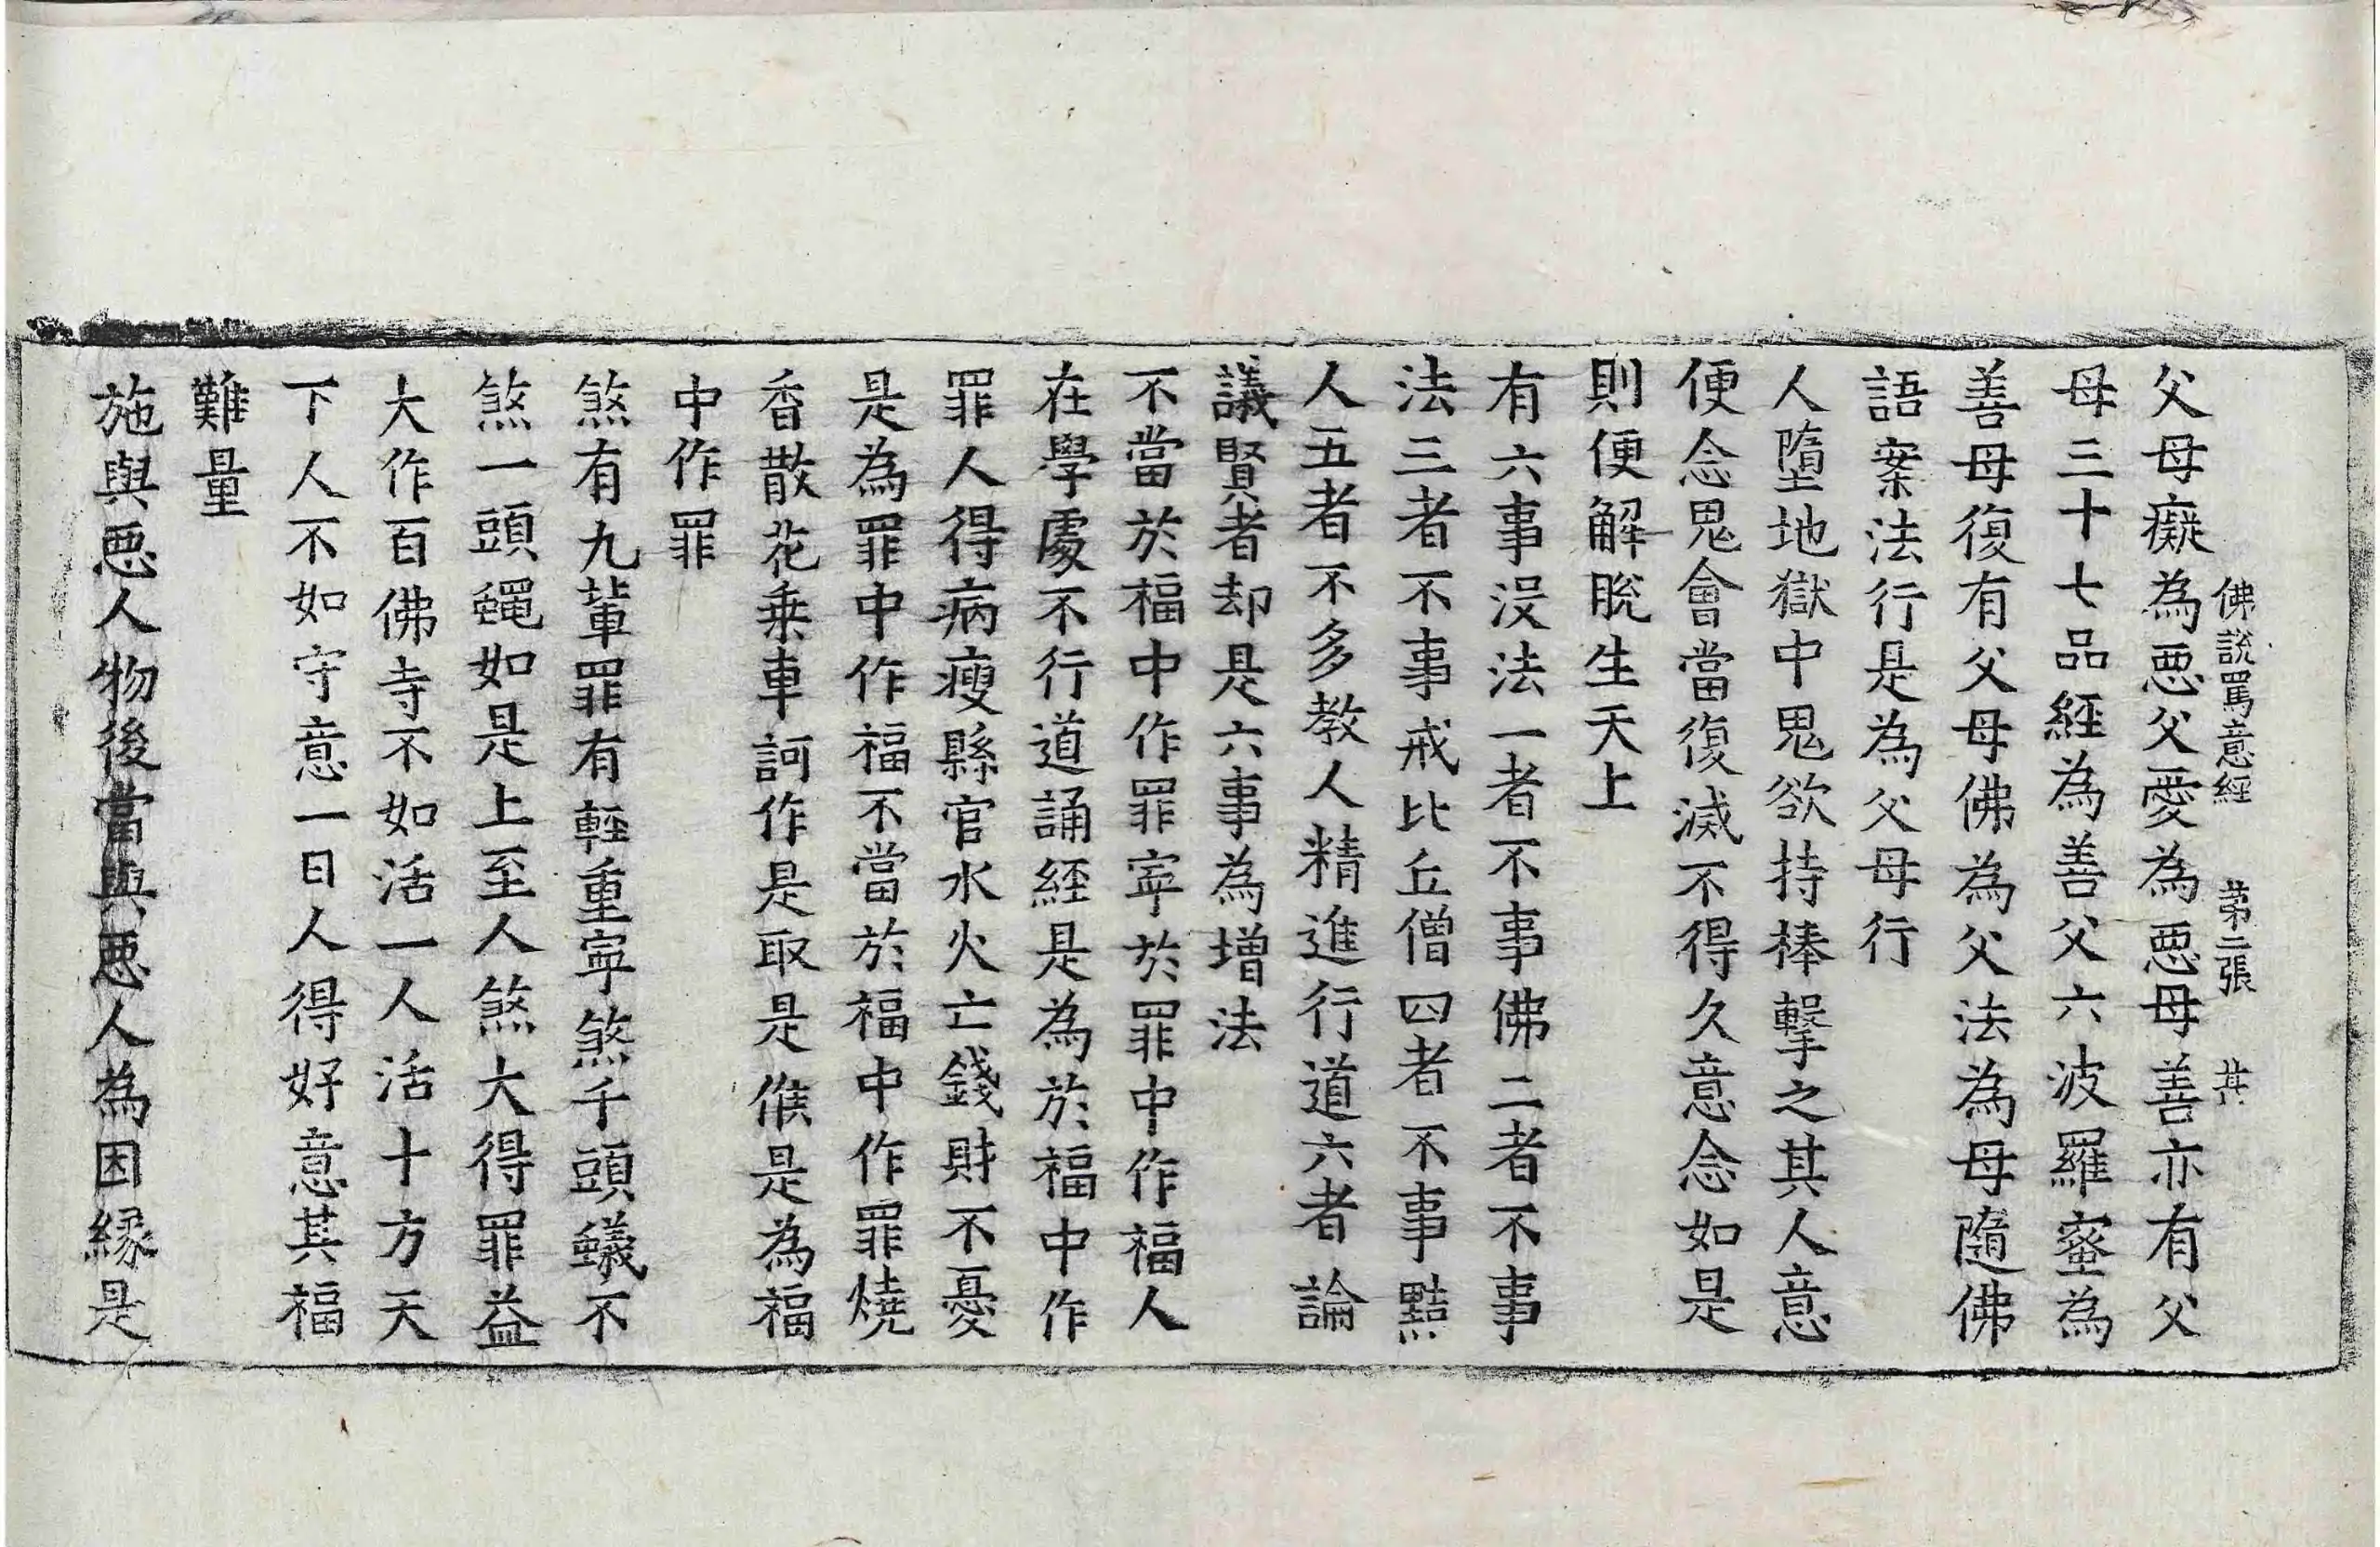 佛說罵意經 第二張 其
父母癡為惡父愛為惡母善亦有父
母三十七品經為善父六波羅蜜為
善母復有父母佛為父法為母隨佛
語案法行是為父母行
人墮地獄中鬼欲持棒擊之其人意
便念鬼會當復滅不得久意念如是
則便解脫生天上
有六事沒法一者不事佛二者不事
法三者不事戒比丘僧四者不事黠
人五者不多教人精進行道六者論
議賢者却是六事為增法
不當於福中作罪寧於罪中作福人
在學處不行道誦経是為於福中作
罪人得病瘦縣官水火亡錢財不憂
是為罪中作福不當於福中作罪燒
香散花乗車訶作是取是倐是為福
中作罪
煞有九輩罪有輕重寧煞千頭蟻不
煞一頭蠅如是上至人煞大得罪益
大作百佛寺不如活一人活十方天
下人不如守意一日人得好意其福
難量
施與惡人物後當與惡人為因緣是